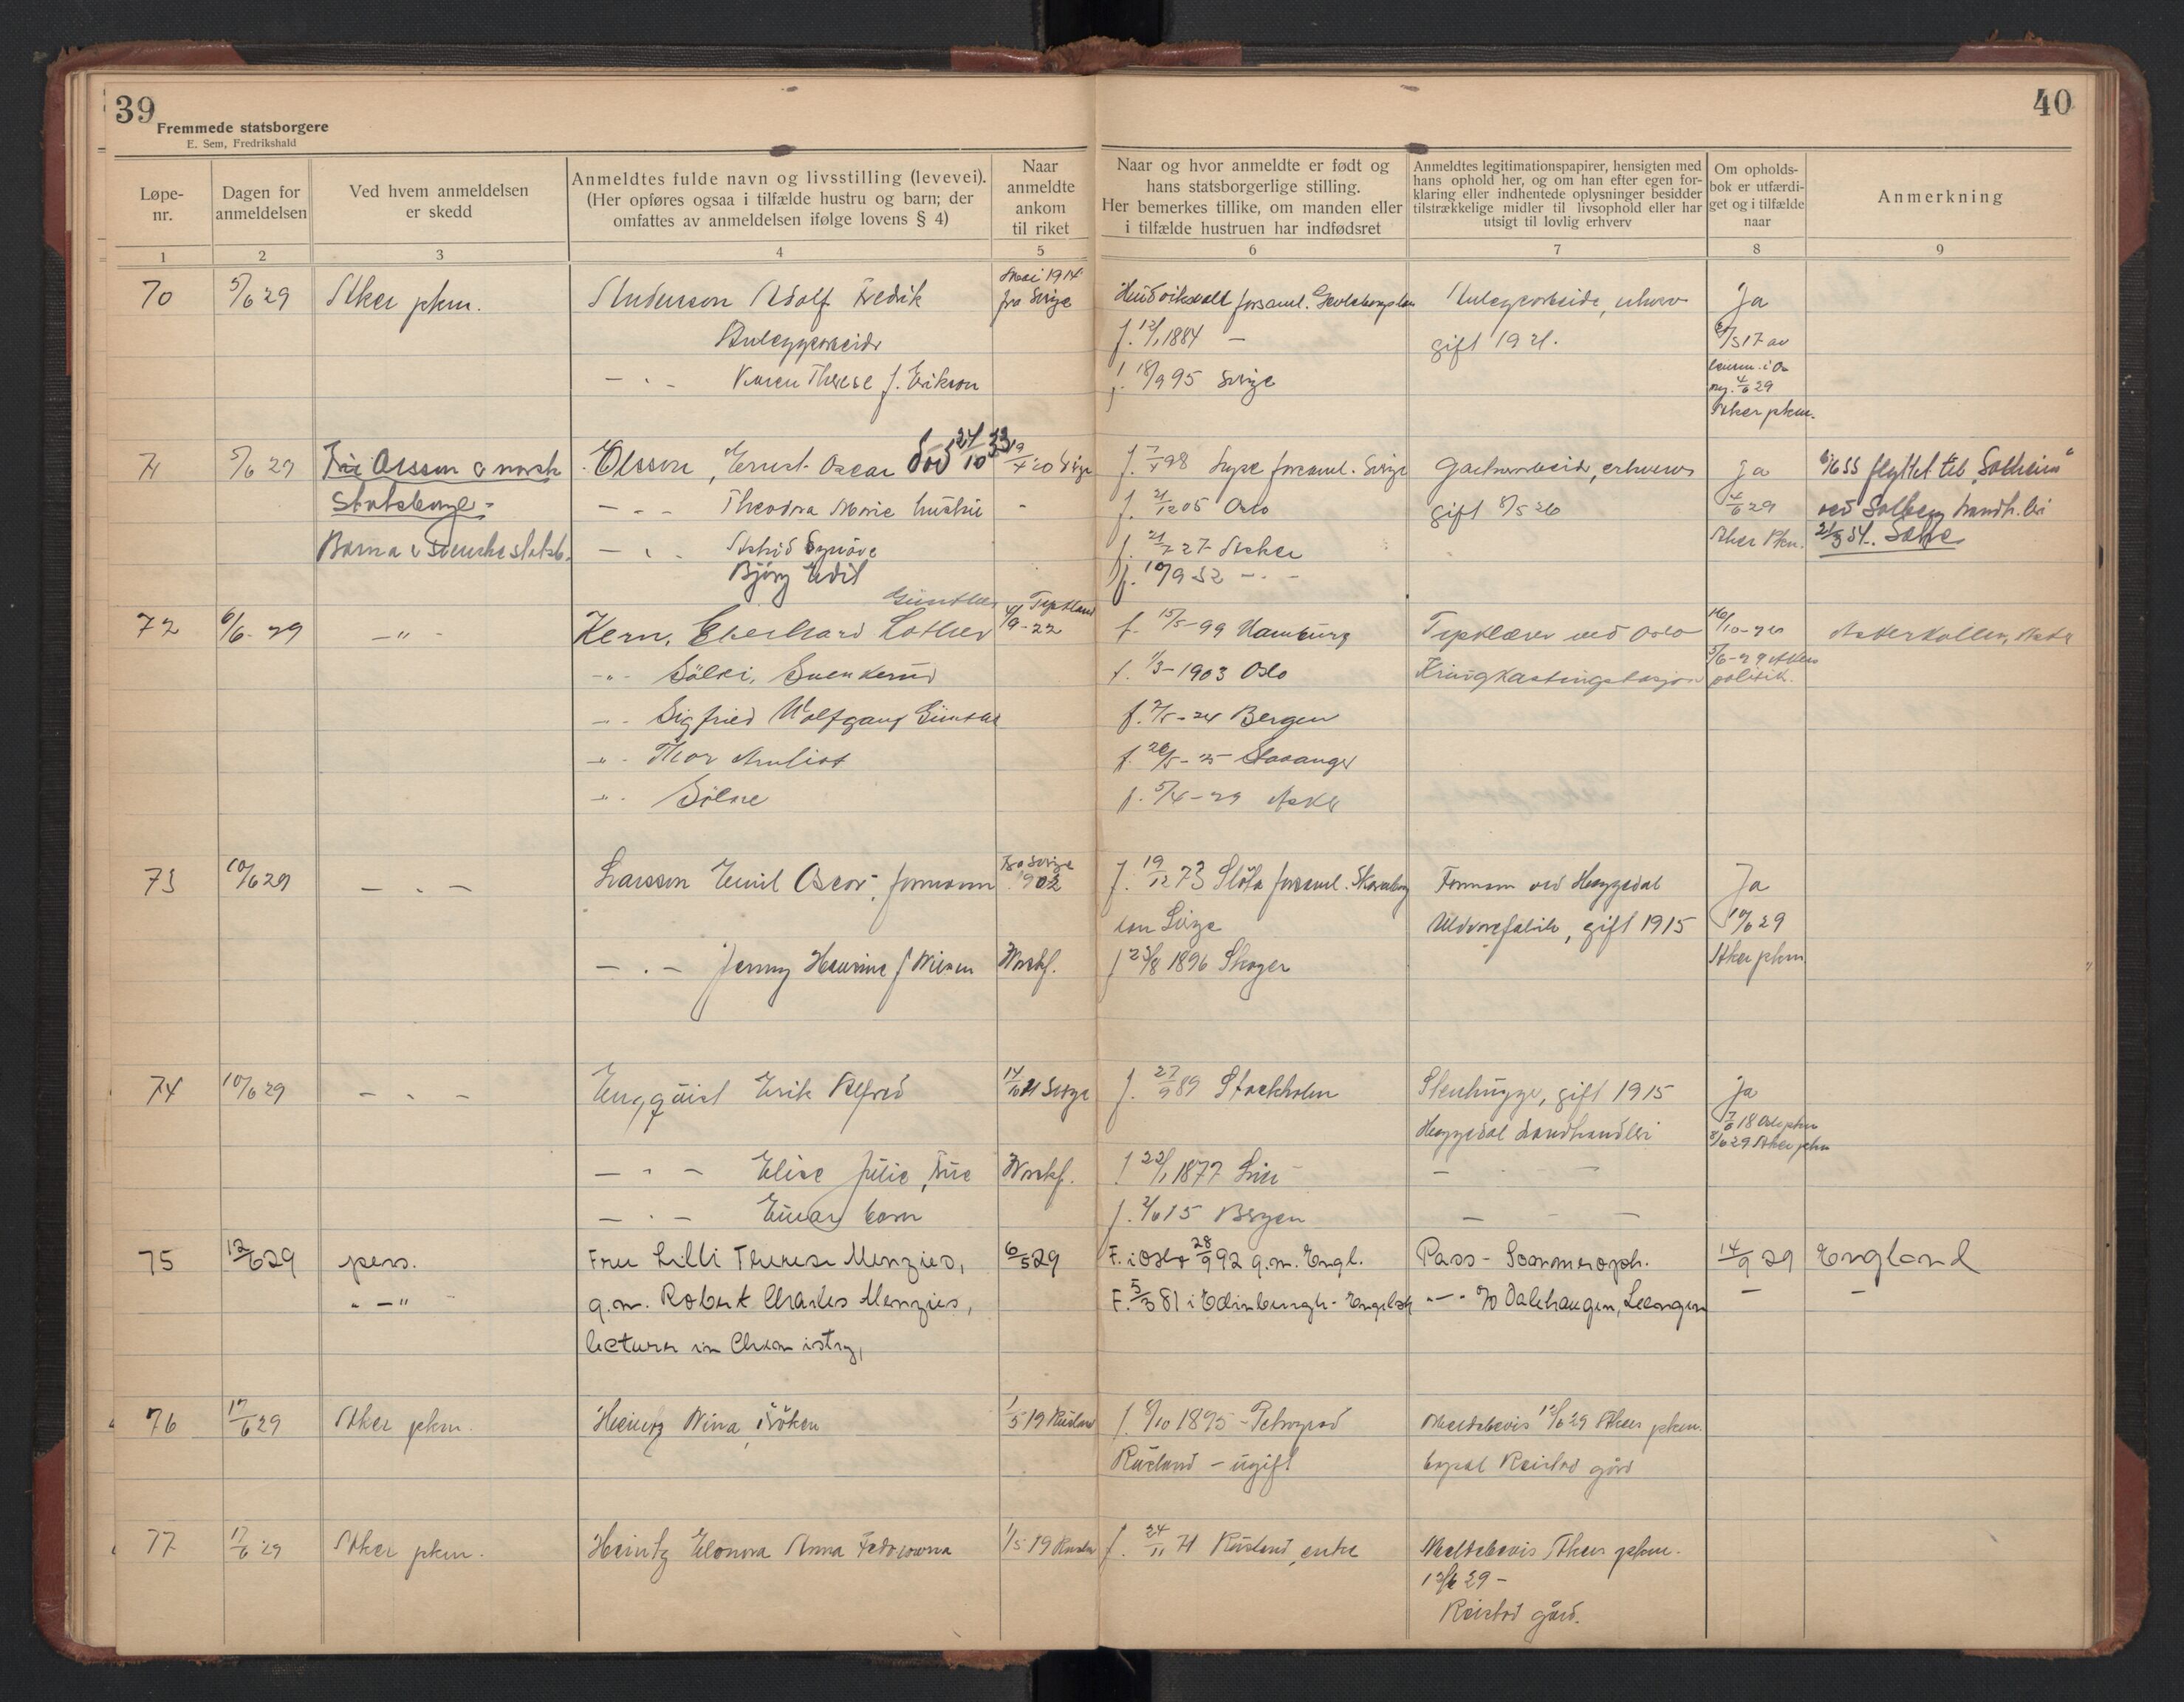 39
Fremmede statsborgere
E. Sem, Fredrikshald
40
Løpe-
nr.
Dagen for
anmeldelsen
Ved hvem anmeldelsen
er skedd
Anmeldtes fulde navn og livsstilling (levevei).
(Her opføres ogsaa i tilfælde hustru og barn; der
omfattes av anmeldelsen ifølge lovens § 4)
Naar
anmeldte
ankom
til riket
Naar og hvor anmeldte er født og
hans statsborgerlige stilling.
Her bemerkes tillike, om manden eller
i tilfælde hustruen har indfødsret
Anmeldtes legitimationspapirer, hensigten med
hans ophold her, og om han efter egen for-
klaring eller indhentede oplysninger besidder
tilstrækkelige midler til livsophold eller har
utsigt til lovlig erhverv
Om opholds-
bok er utfærdi-
get og i tilfælde
naar
Anmerkning
1 2 3 4 5 6 7 8 9
70 5/6 29 Asker pkm. Anderson Adolf Fredrik Mai 1914 fra Sverige Hudviksvall forsaml. Gevleborgs len Anleggsarbeide, erhverv Ja
Anleggsarbeider f. 12/1 1884 — gift 1921. 21/3 17 av
— " — Karen Therese f. Erikson f. 18/9 95 Sverige lensm. i
ny. 4/6 29
Asker pkm.
71 5/6 29 Fru Olsson er norsk Olsson, Ernst Oscar død 24/10 33 20 Sverige f. 7/4 98 forsaml. Sverige Gartnerarbeide, erhverv ja flyttet til "Solheim"
statsborger - — " — Theodora Marie hustru - f. 21/12 05 Oslo gift 8/5 26 4/6 29 ved Solberg landh.
Barna er svenske statsb. — " — Astrid Synøve f. 21/7 27 Asker Asker Pkm. 21/3 34.
Bjørg Edit f. 10/9 32 — " —
72 6/6 - 29 — " — Kern, Eberhard Lothar Günther 4/9 - 22 Tyskland f. 15/5 - 99 Hamburg Tysklærer ved Oslo 16/10 - 26 Askerkollen, Asker
— " — Sölvi, Svenkerud f. 1/3 - 1903 Oslo Kringkastingstasjon 5/6 - 29 Asker
politik.
— " — Sigfried Wolfgang Günther f. 2/5 - 24 Bergen
— " — Thor f. 26/5 - 25 Stavanger
— " — Sölve f. 5/4 - 29 Asker
73 10/6 29 — " — Larsson Emil Oscar, formann Fra Sverige 1902 f. 19/12 73 Slöta forsaml. Skaraborg Formann ved Heggedal Ja
len Sverige Uldvarefabrik, gift 1915 10/6 29
— " — Jenny Henrine f. Nilsen Norskf. f 23/8 1896 Skoger Asker pkm
74 10/6 29 — " — Engquist Erik Alfred 14/10 21 Sverige f. 27/9 89 Stockholm Stenhugger, gift 1915 ja
Heggedal Landhandleri 7/6 18 Oslo pkm
8/6 29 Asker pkm
— " — Elise Julie, Frue Norskf. f 22/1 1877 Lier — " —
— " — Einar barn f. 2/6 15 Bergen — — —
75 12/6 29 pers. Frue Lilli Therese Menzies, 6/5 29 F. i Oslo 28/9 92 g.m. Engl. Pass - Sommeroph. 14/9 29 England
" — " g.m. Robert Charles Menzies, F. 5/3 81 i Edinburgh - Engelsk " — " % Dalehaugen, Leangen — —
lecturer in Chemistry,
76 17/6 29 Asker pkm. Heintz Nina, frøken 1/5 19 Rusland f. 8/10 1895 - Petrograd Meldebevis 12/6 29 Asker pkm.
Rusland - ugift bopæl Reistad gård
77 17/6 29 Asker pkm. Heintz Elonora Anna Fedorowna 1/5 19 Rusland f. 24/11 71 Rusland, enke Meldebevis Asker pkm.
12/6 29 -
Reistad gård.